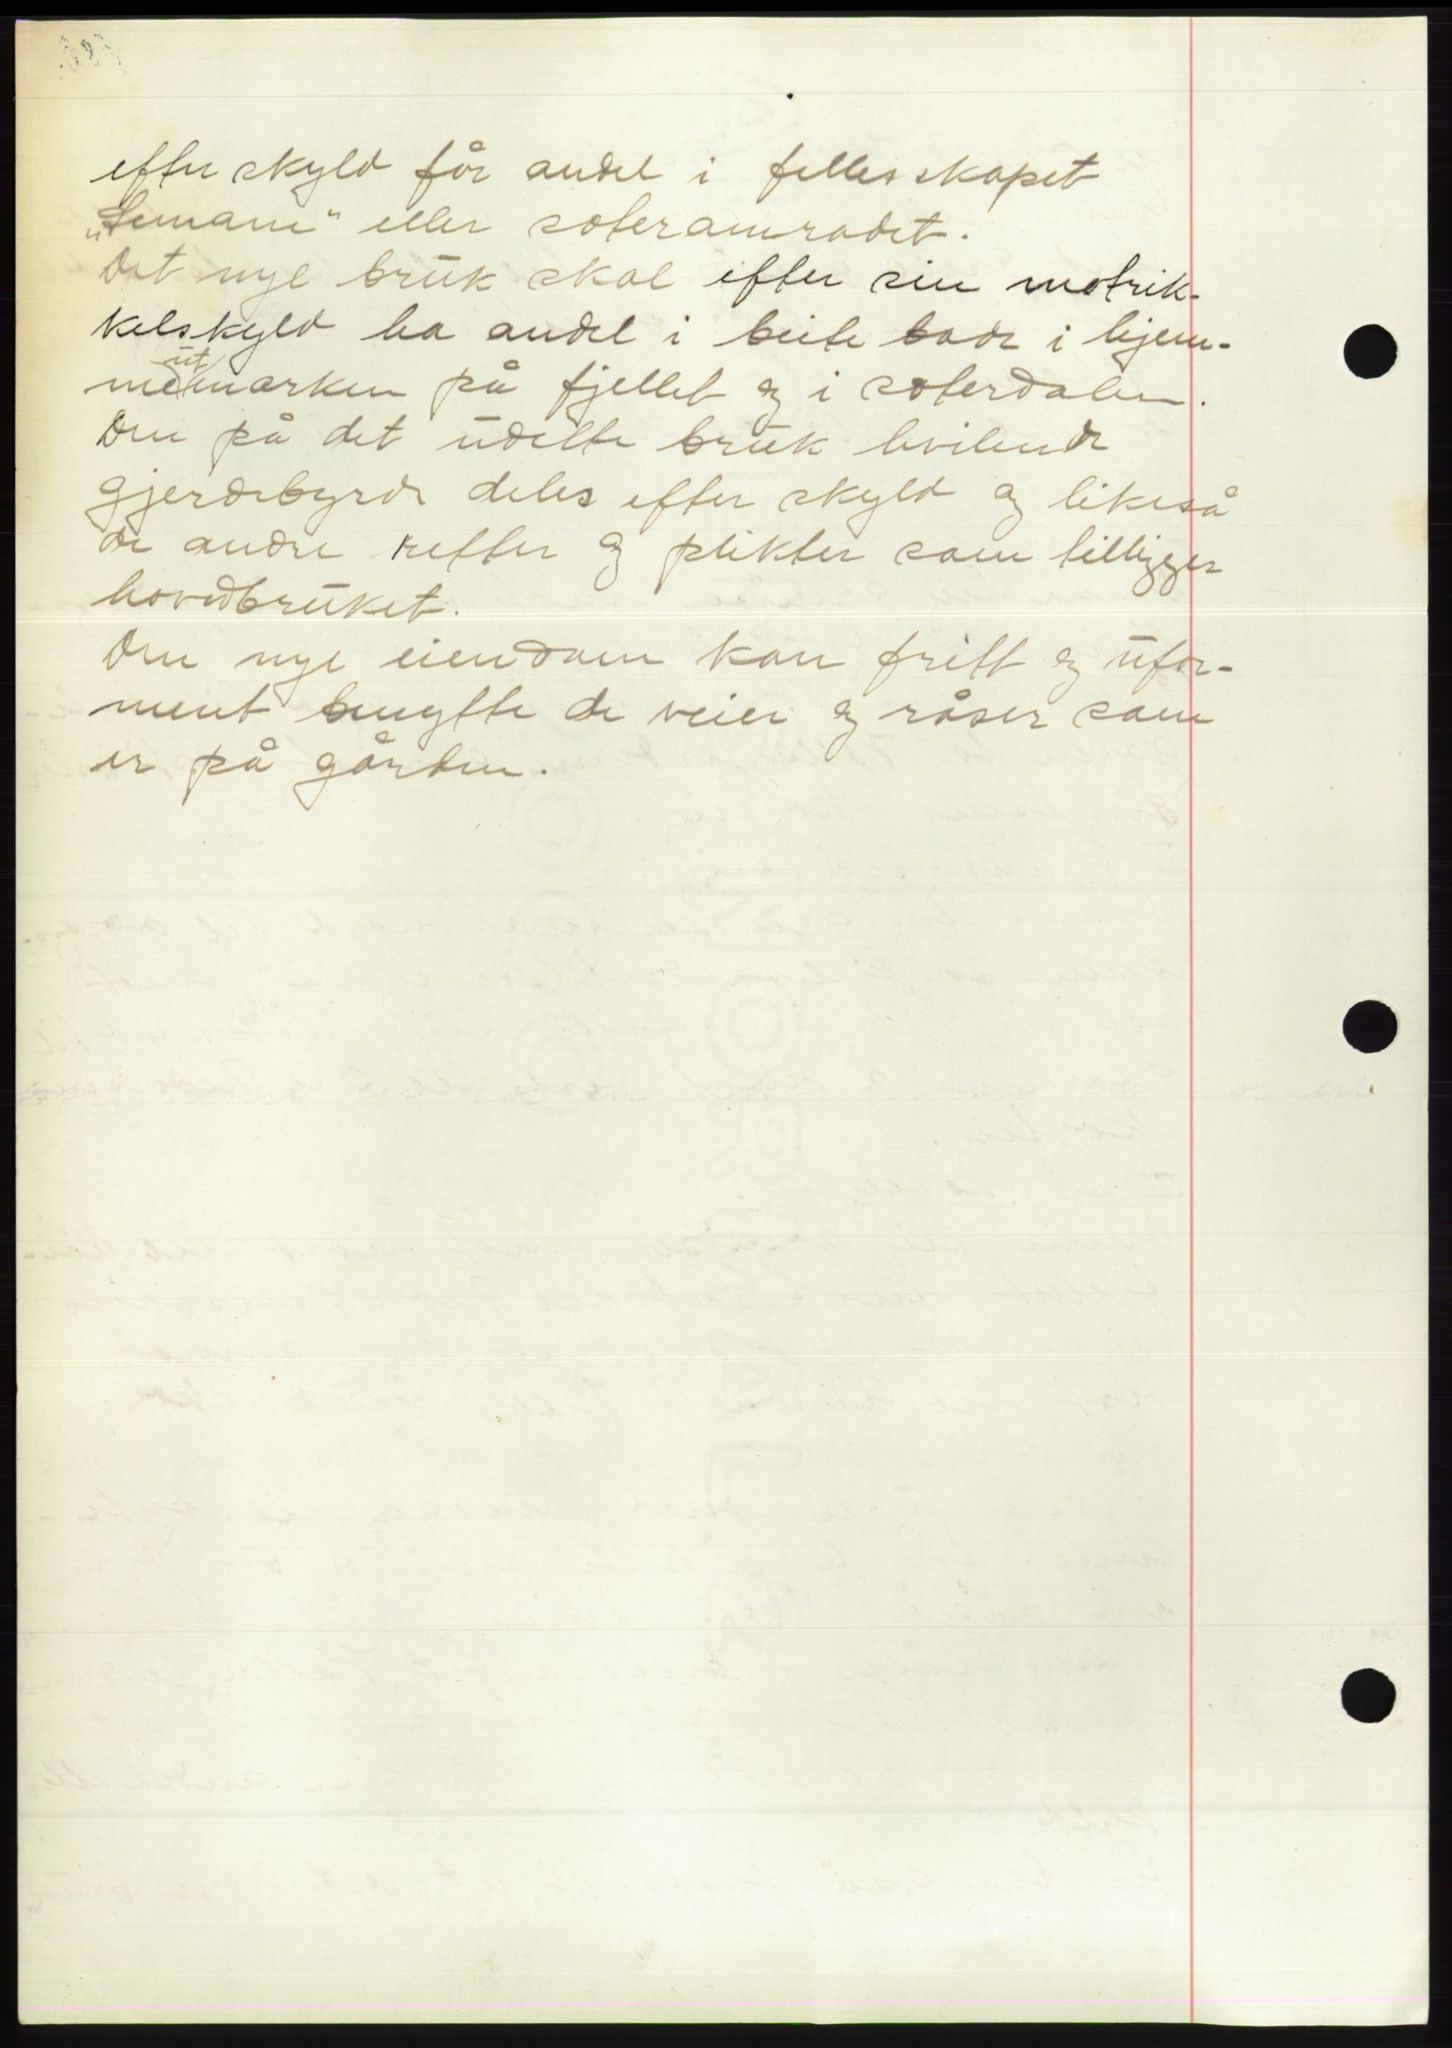 efter skyld får andel i fellesskapet
eller sæteramrådet.
Det nye bruk skal efter sin matrik-
kelskyld ha andel i beite både i hjem-
meutmarken på fjellet og i sæterdalen.
Den på det udelte bruk hvilende
gjerdebyrde deles efter skyld og likeså
de andre retter og plikter som tilligger
hovedbruket.
Den nye eiendom kan fritt og ufor-
ment benytte de veier og råser som
er på gården.